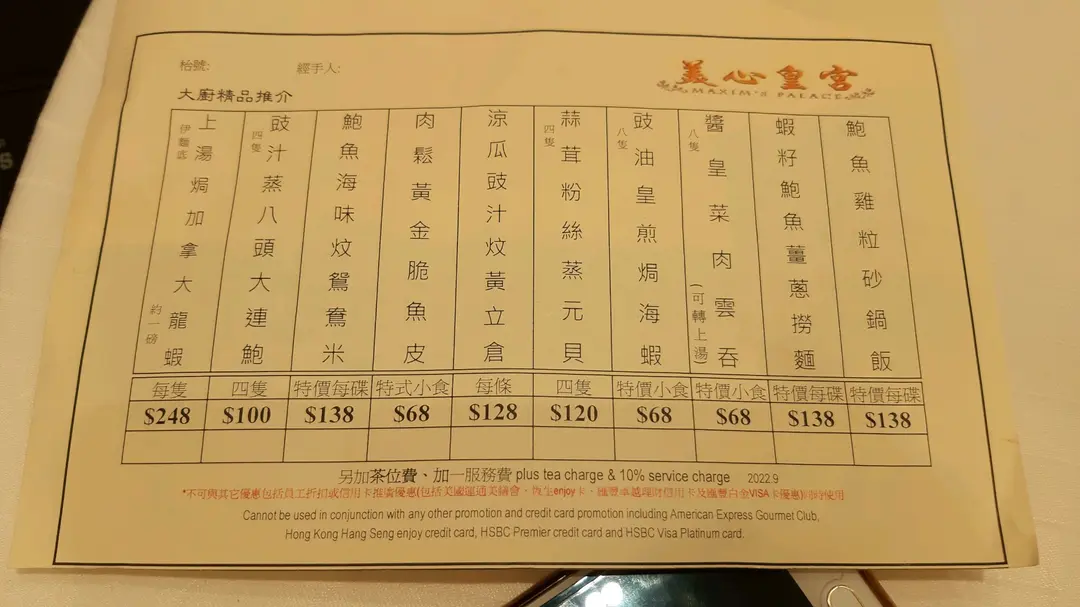 枱號:
經手人:
美心皇宮
MAXIM's PALACE
大廚精品推介
鮑魚雞粒砂鍋飯
特價每碟
$138
蝦籽鮑魚薑蔥撈麵
特價每碟
$138
醬皇菜肉雲吞
八隻
(可轉上湯)
特價小食
$68
豉油皇煎焗海蝦
八隻
特價小食
$68
蒜茸粉絲蒸元貝
四隻
四隻
$120
涼瓜豉汁炆黃立倉
每條
$128
肉鬆黃金脆魚皮
特式小食
$68
鮑魚海味炆鴛鴦米
特價每碟
$138
豉汁蒸八頭大連鮑
四隻
四隻
$100
上湯焗加拿大龍蝦
伊麵底
約一磅
每隻
$248
另加茶位費、加一服務費 plus tea charge & 10% service charge 2022.9
*不可與其它優惠包括員工折扣或信用卡推廣優惠(包括美國運通美膳會、恆生enjoy卡、匯豐卓越理財信用卡及匯豐白金VISA卡優惠)同時使用
Cannot be used in conjunction with any other promotion and credit card promotion including American Express Gourmet Club,
Hong Kong Hang Seng enjoy credit card, HSBC Premier credit card and HSBC Visa Platinum card.